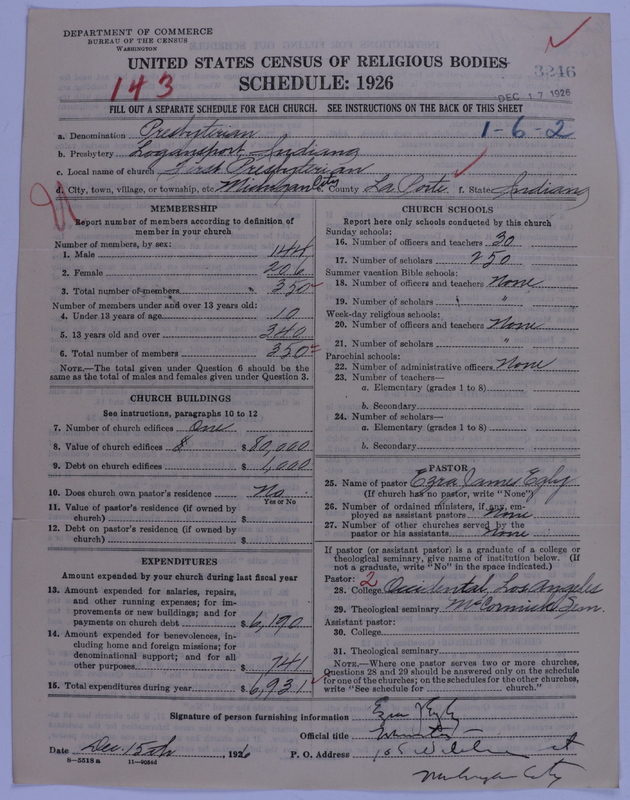 DEPARTMENT OF COMMERCE
BUREAU OF THE CENSUS
WASHINGTON
UNITED STATES CENSUS OF RELIGIOUS BODIES
SCHEDULE: 1926
143
3246
DEC 17 1926
FILL OUT A SEPARATE SCHEDULE FOR EACH CHURCH. SEE INSTRUCTIONS ON THE BACK OF THIS SHEET
1-6-2
a. Denomination Presbyterian
b. Presbytery Logansport, Indiana
c. Local name of church First Presbyterian
d. City, town, village, or township, etc. Michigan City e. County La Porte f. State Indiana
MEMBERSHIP
Report number of members according to definition of member in your church
Number of members, by sex:
1. Male 144
2. Female 206
3. Total number of members 350
Number of members under and over 13 years old:
4. Under 13 years of age 10
5. 13 years old and over 340
6. Total number of members 350
NOTE.—The total given under Question 6 should be the same as the total of males and females given under Question 3.
CHURCH BUILDINGS
See instructions, paragraphs 10 to 12
7. Number of church edifices One
8. Value of church edifices $ $ 80,000
9. Debt on church edifices $ 1,000
10. Does church own pastor's residence No
Yes or No
11. Value of pastor's residence (if owned by church) $
12. Debt on pastor's residence (if owned by church) $
EXPENDITURES
Amount expended by your church during last fiscal year
13. Amount expended for salaries, repairs, and other running expenses; for improvements or new buildings; and for payments on church debt $ 6,190
14. Amount expended for benevolences, including home and foreign missions; for denominational support; and for all other purposes $ 741
15. Total expenditures during year $ 6,931
CHURCH SCHOOLS
Report here only schools conducted by this church
Sunday schools:
16. Number of officers and teachers 30
17. Number of scholars 250
Summer vacation Bible schools:
18. Number of officers and teachers None
19. Number of scholars "
Week-day religious schools:
20. Number of officers and teachers None
21. Number of scholars "
Parochial schools:
22. Number of administrative officers None
23. Number of teachers—
a. Elementary (grades 1 to 8)
b. Secondary
24. Number of scholars—
a. Elementary (grades 1 to 8)
b. Secondary
PASTOR
25. Name of pastor Ezra James Egly
(If church has no pastor, write "None")
26. Number of ordained ministers, if any, employed as assistant pastors None
27. Number of other churches served by the pastor or his assistants None
If pastor (or assistant pastor) is a graduate of a college or theological seminary, give name of institution below. (If not a graduate, write "No" in the space indicated.)
Pastor: 2
28. College Occidental, Los Angeles
29. Theological seminary McCormick Sem.
Assistant pastor:
30. College
31. Theological seminary
NOTE.—Where one pastor serves two or more churches, Questions 28 and 29 should be answered only on the schedule for one of the churches; on the schedules for the other churches, write "See schedule for church."
Signature of person furnishing information Ezra J Egly
Official title Minister
Date Dec. 15th, 1926 P. O. Address st
Michigan City
8-5518 a 11-90646